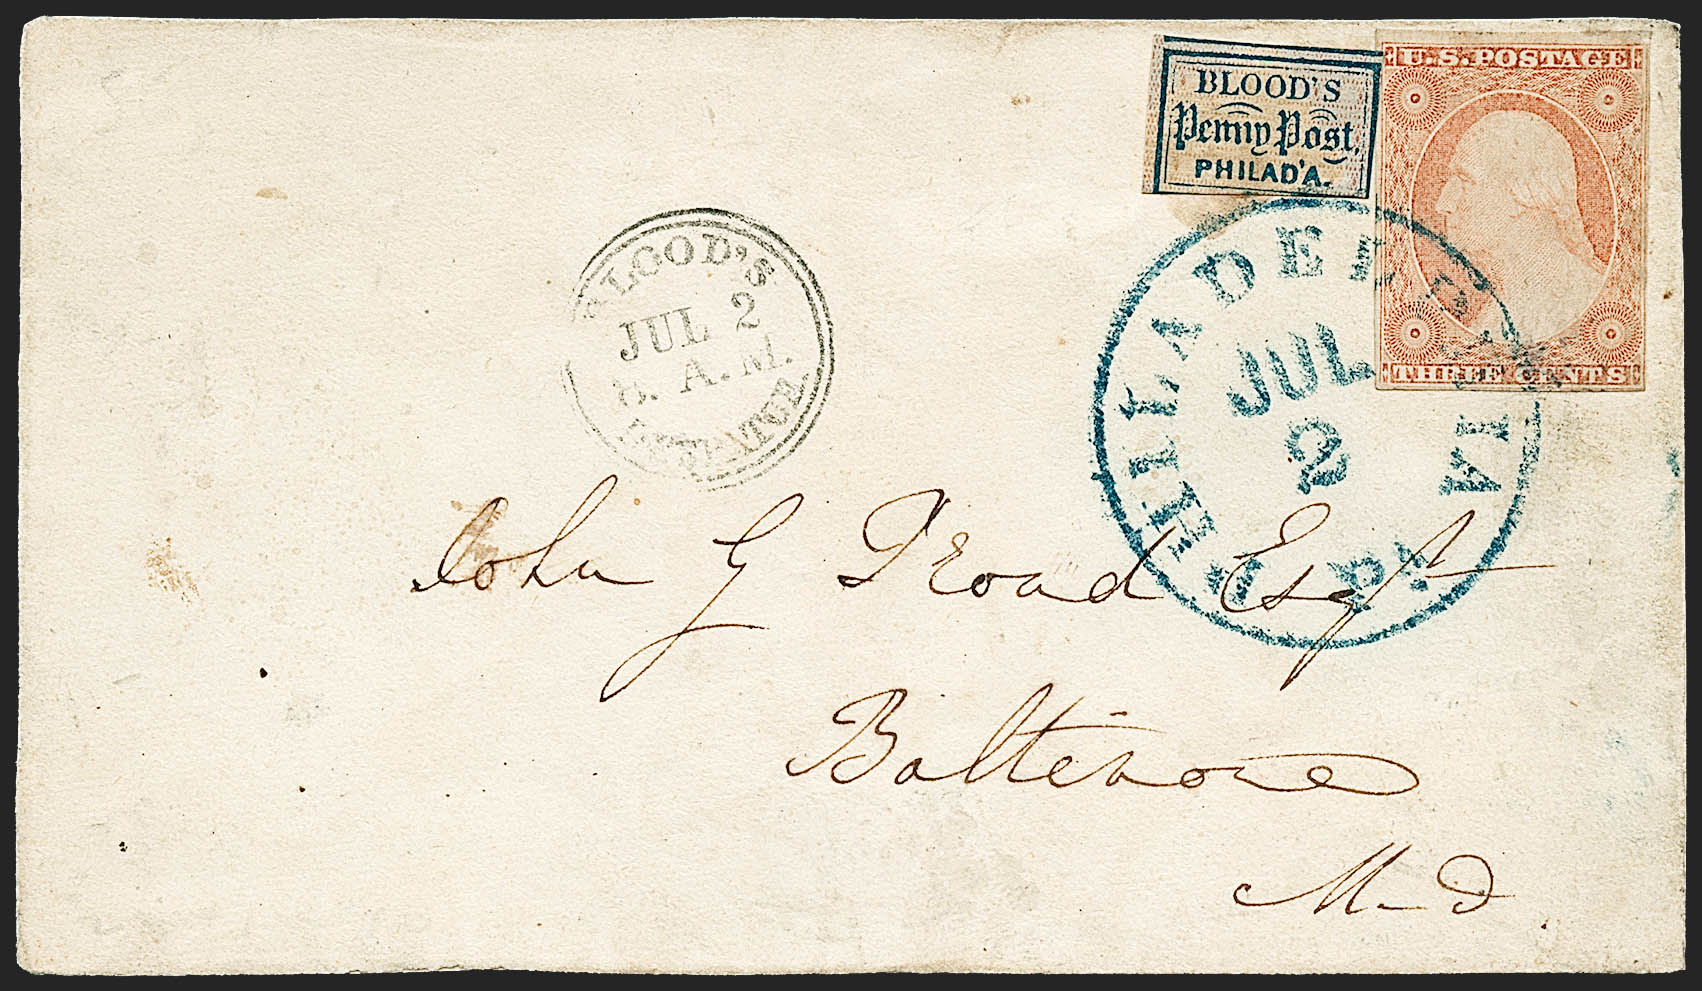 BLOOD'S
Penny Post,
PHILAD'A.
U.S. POSTAGE
THREE CENTS
BLOOD'S
JUL 2
8. A.M.
DESPATCH
PHILADELPHIA
JUL
2
Pa
John G Proud Esqr
Baltimore
Md